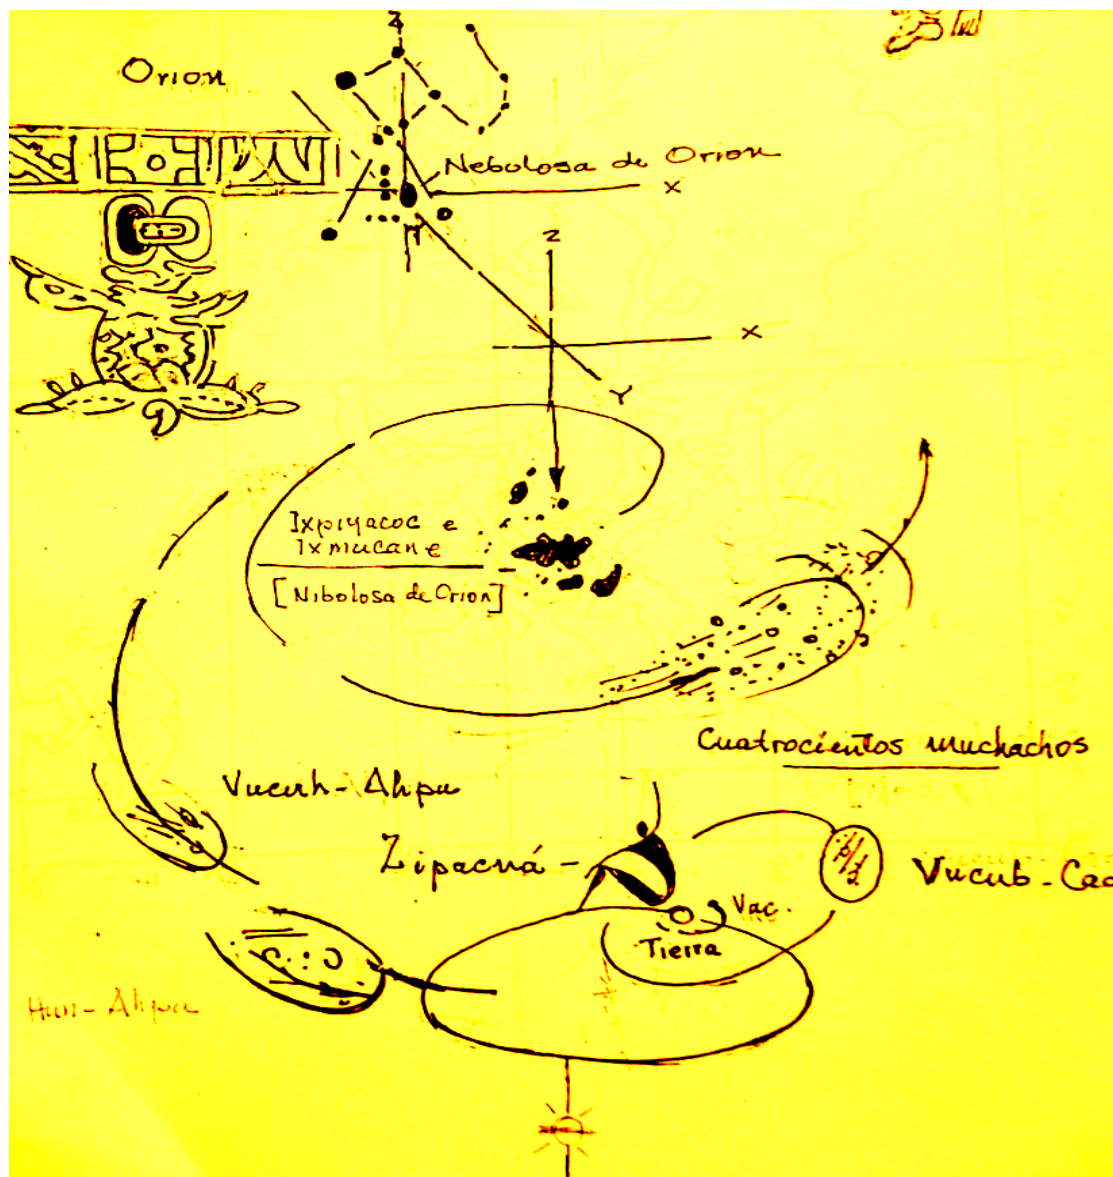 Z
Orion
Nebulosa de Orion
X
Y
Z
X
Y
Ixpiyacoc e
Ixmucane
[Nibolosa de Orion]
Cuatrocientos muchachos
Vucuh-Ahpu
Zipacná -
Vucub-Cac
Vac.
Tierra
Hun-Ahpu